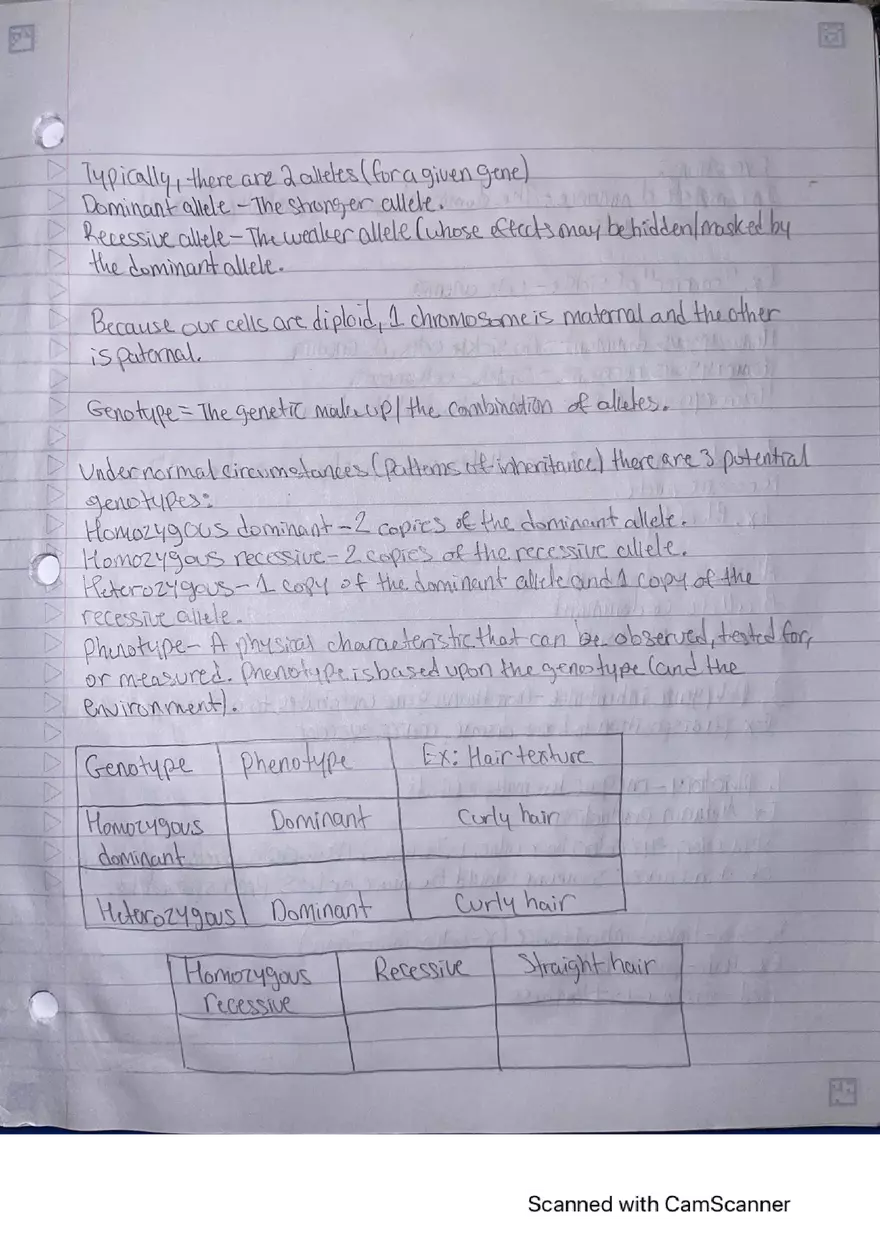 Typically, there are 2 alleles (for a given gene)
Dominant allele - The stronger allele.
Recessive allele - The weaker allele (whose effects may be hidden/masked by
the dominant allele.
Because our cells are diploid, 1 chromosome is maternal and the other
is paternal.
Genotype = The genetic makeup/the combination of alleles.
Under normal circumstances (patterns of inheritance) there are 3 potential
genotypes:
Homozygous dominant - 2 copies of the dominant allele.
Homozygous recessive - 2 copies of the recessive allele.
Heterozygous - 1 copy of the dominant allele and 1 copy of the
recessive allele.
Phenotype - A physical characteristic that can be observed, tested for,
or measured. Phenotype is based upon the genotype (and the
environment).
Genotype Phenotype Ex: Hair texture
Homozygous Dominant Curly hair
dominant
Heterozygous Dominant Curly hair
Homozygous Recessive Straight hair
recessive
Scanned with CamScanner